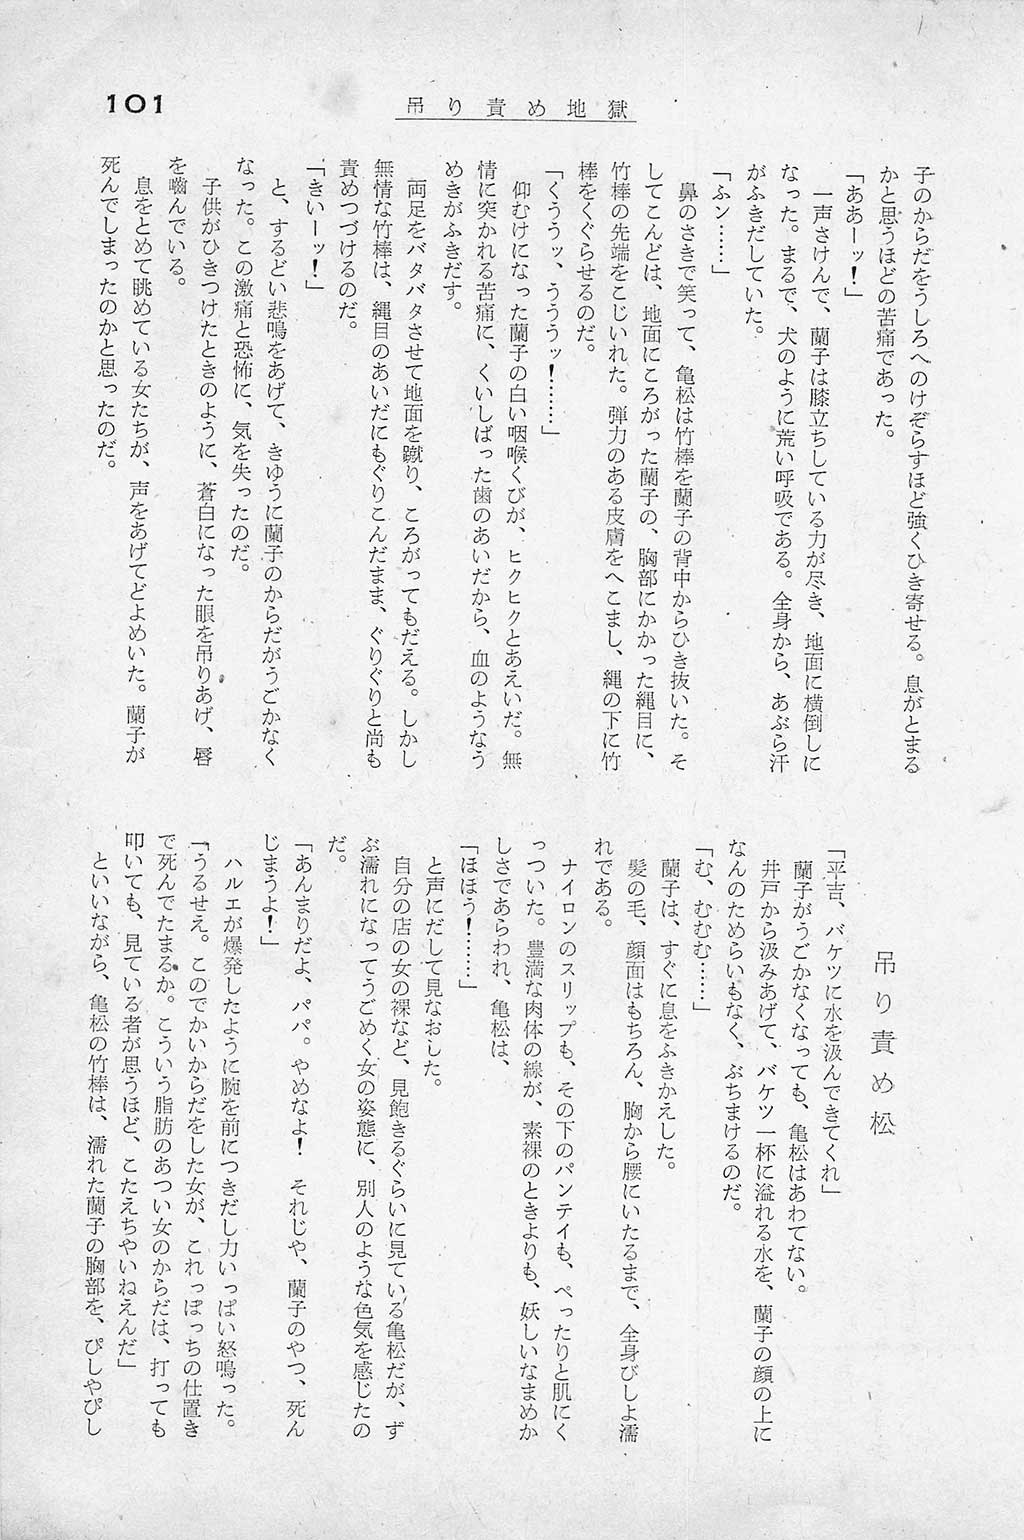 101
吊り責め地獄
子のからだをうしろへのけぞらすほど強くひき寄せる。息がとまる
かと思うほどの苦痛であった。
「ああーッ！」
一声さけんで、蘭子は膝立ちしている力が尽き、地面に横倒しに
なった。まるで、犬のように荒い呼吸である。全身から、あぶら汗
がふきだしていた。
「ふン……」
鼻のさきで笑って、亀松は竹棒を蘭子の背中からひき抜いた。そ
してこんどは、地面にころがった蘭子の、胸部にかかった縄目に、
竹棒の先端をこじいれた。弾力のある皮膚をへこまし、縄の下に竹
棒をくぐらせるのだ。
「くううッ、うううッ！……」
仰むけになった蘭子の白い咽喉くびが、ヒクヒクとあえいだ。無
情に突かれる苦痛に、くいしばった歯のあいだから、血のようなう
めきがふきだす。
両足をバタバタさせて地面を蹴り、ころがってもだえる。しかし
無情な竹棒は、縄目のあいだにもぐりこんだまま、ぐりぐりと尚も
責めつづけるのだ。
「きいーッ！」
と、するどい悲鳴をあげて、きゆうに蘭子のからだがうごかなく
なった。この激痛と恐怖に、気を失ったのだ。
子供がひきつけたときのように、蒼白になった眼を吊りあげ、唇
を嚙んでいる。
息をとめて眺めている女たちが、声をあげてどよめいた。蘭子が
死んでしまったのかと思ったのだ。
吊り責め松
「平吉、バケツに水を汲んできてくれ」
蘭子がうごかなくなっても、亀松はあわてない。
井戸から汲みあげて、バケツ一杯に溢れる水を、蘭子の顔の上に
なんのためらいもなく、ぶちまけるのだ。
「む、むむむ……」
蘭子は、すぐに息をふきかえした。
髪の毛、顔面はもちろん、胸から腰にいたるまで、全身びしよ濡
れである。
ナイロンのスリップも、その下のパンテイも、ぺったりと肌にく
っついた。豊満な肉体の線が、素裸のときよりも、妖しいなまめか
しさであらわれ、亀松は、
「ほほう！……」
と声にだして見なおした。
自分の店の女の裸など、見飽きるぐらいに見ている亀松だが、ず
ぶ濡れになってうごめく女の姿態に、別人のような色気を感じたの
だ。
「あんまりだよ、パパ。やめなよ！　それじや、蘭子のやつ、死ん
じまうよ！」
ハルエが爆発したように腕を前につきだし力いっぱい怒鳴った。
「うるせえ。このでかいからだをした女が、これっぽっちの仕置き
で死んでたまるか。こういう脂肪のあつい女のからだは、打っても
叩いても、見ている者が思うほど、こたえちやいねえんだ」
といいながら、亀松の竹棒は、濡れた蘭子の胸部を、ぴしやぴし